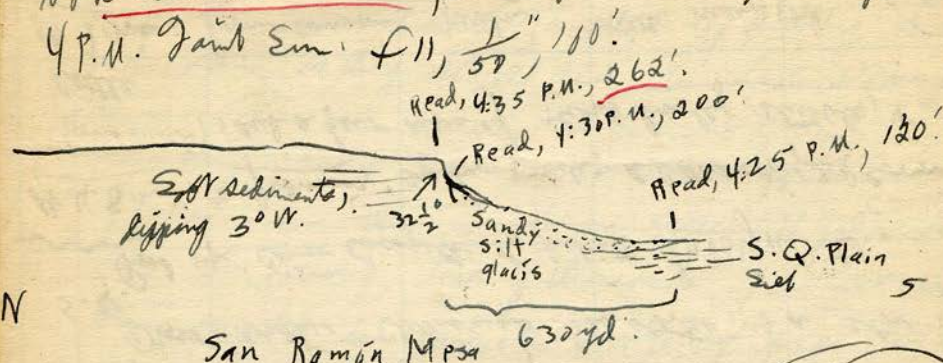 4 P.M. Faint Sun. f 11, 1/50", 100'.
Read, 4:35 P.M., 262'.
Read, 4:30 P.M., 200'.
Read, 4:25 P.M., 120'.
sediments,
dipping 3° N.
32 1/2°
Sandy
silt
glacis
S. Q. Plain
N
S
630 yd.
San Ramón Mesa